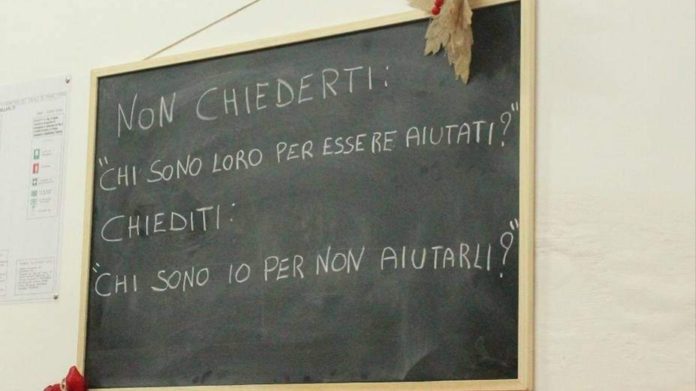 NON CHIEDERTI:
"CHI SONO LORO PER ESSERE AIUTATI?"
CHIEDITI:
"CHI SONO IO PER NON AIUTARLI?"